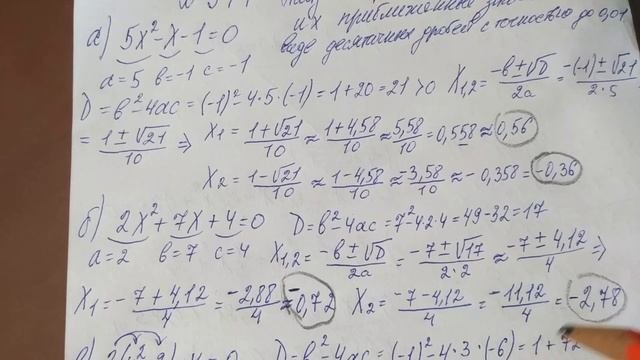 их приближенные
а) 5x²-x-1=0
виде десятичных дробей с точностью до 0,01
a=5 b=-1 c=-1
D=b²-4ac=(-1)²-4·5·(-1)=1+20=21>0 X₁,₂=(-b±√D)/2a=(-(-1)±√21)/2·5
=(1±√21)/10 ⇒ X₁=(1+√21)/10≈(1+4,58)/10≈5,58/10=0,558≈0,56
X₂=(1-√21)/10≈(1-4,58)/10≈-3,58/10≈-0,358=-0,36
б) 2x²+7x+4=0 D=b²-4ac=7²-4·2·4=49-32=17
a=2 b=7 c=4 X₁,₂=(-b±√D)/2a=(-7±√17)/2·2≈(-7±4,12)/4⇒
X₁=(-7+4,12)/4=-2,88/4≈-0,72 X₂=(-7-4,12)/4=-11,12/4=-2,78
D=b²-4ac=(-1)²-4·3·(-6)=1+72